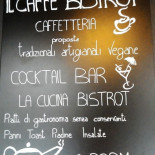 IL CAFFÈ BISTROT
CAFFETTERIA
proposte
tradizionali artigianali vegane
COCKTAIL BAR
LA CUCINA BISTROT
Piatti di gastronomia senza conservanti
Panini Toast Piadine Insalate
ROOM